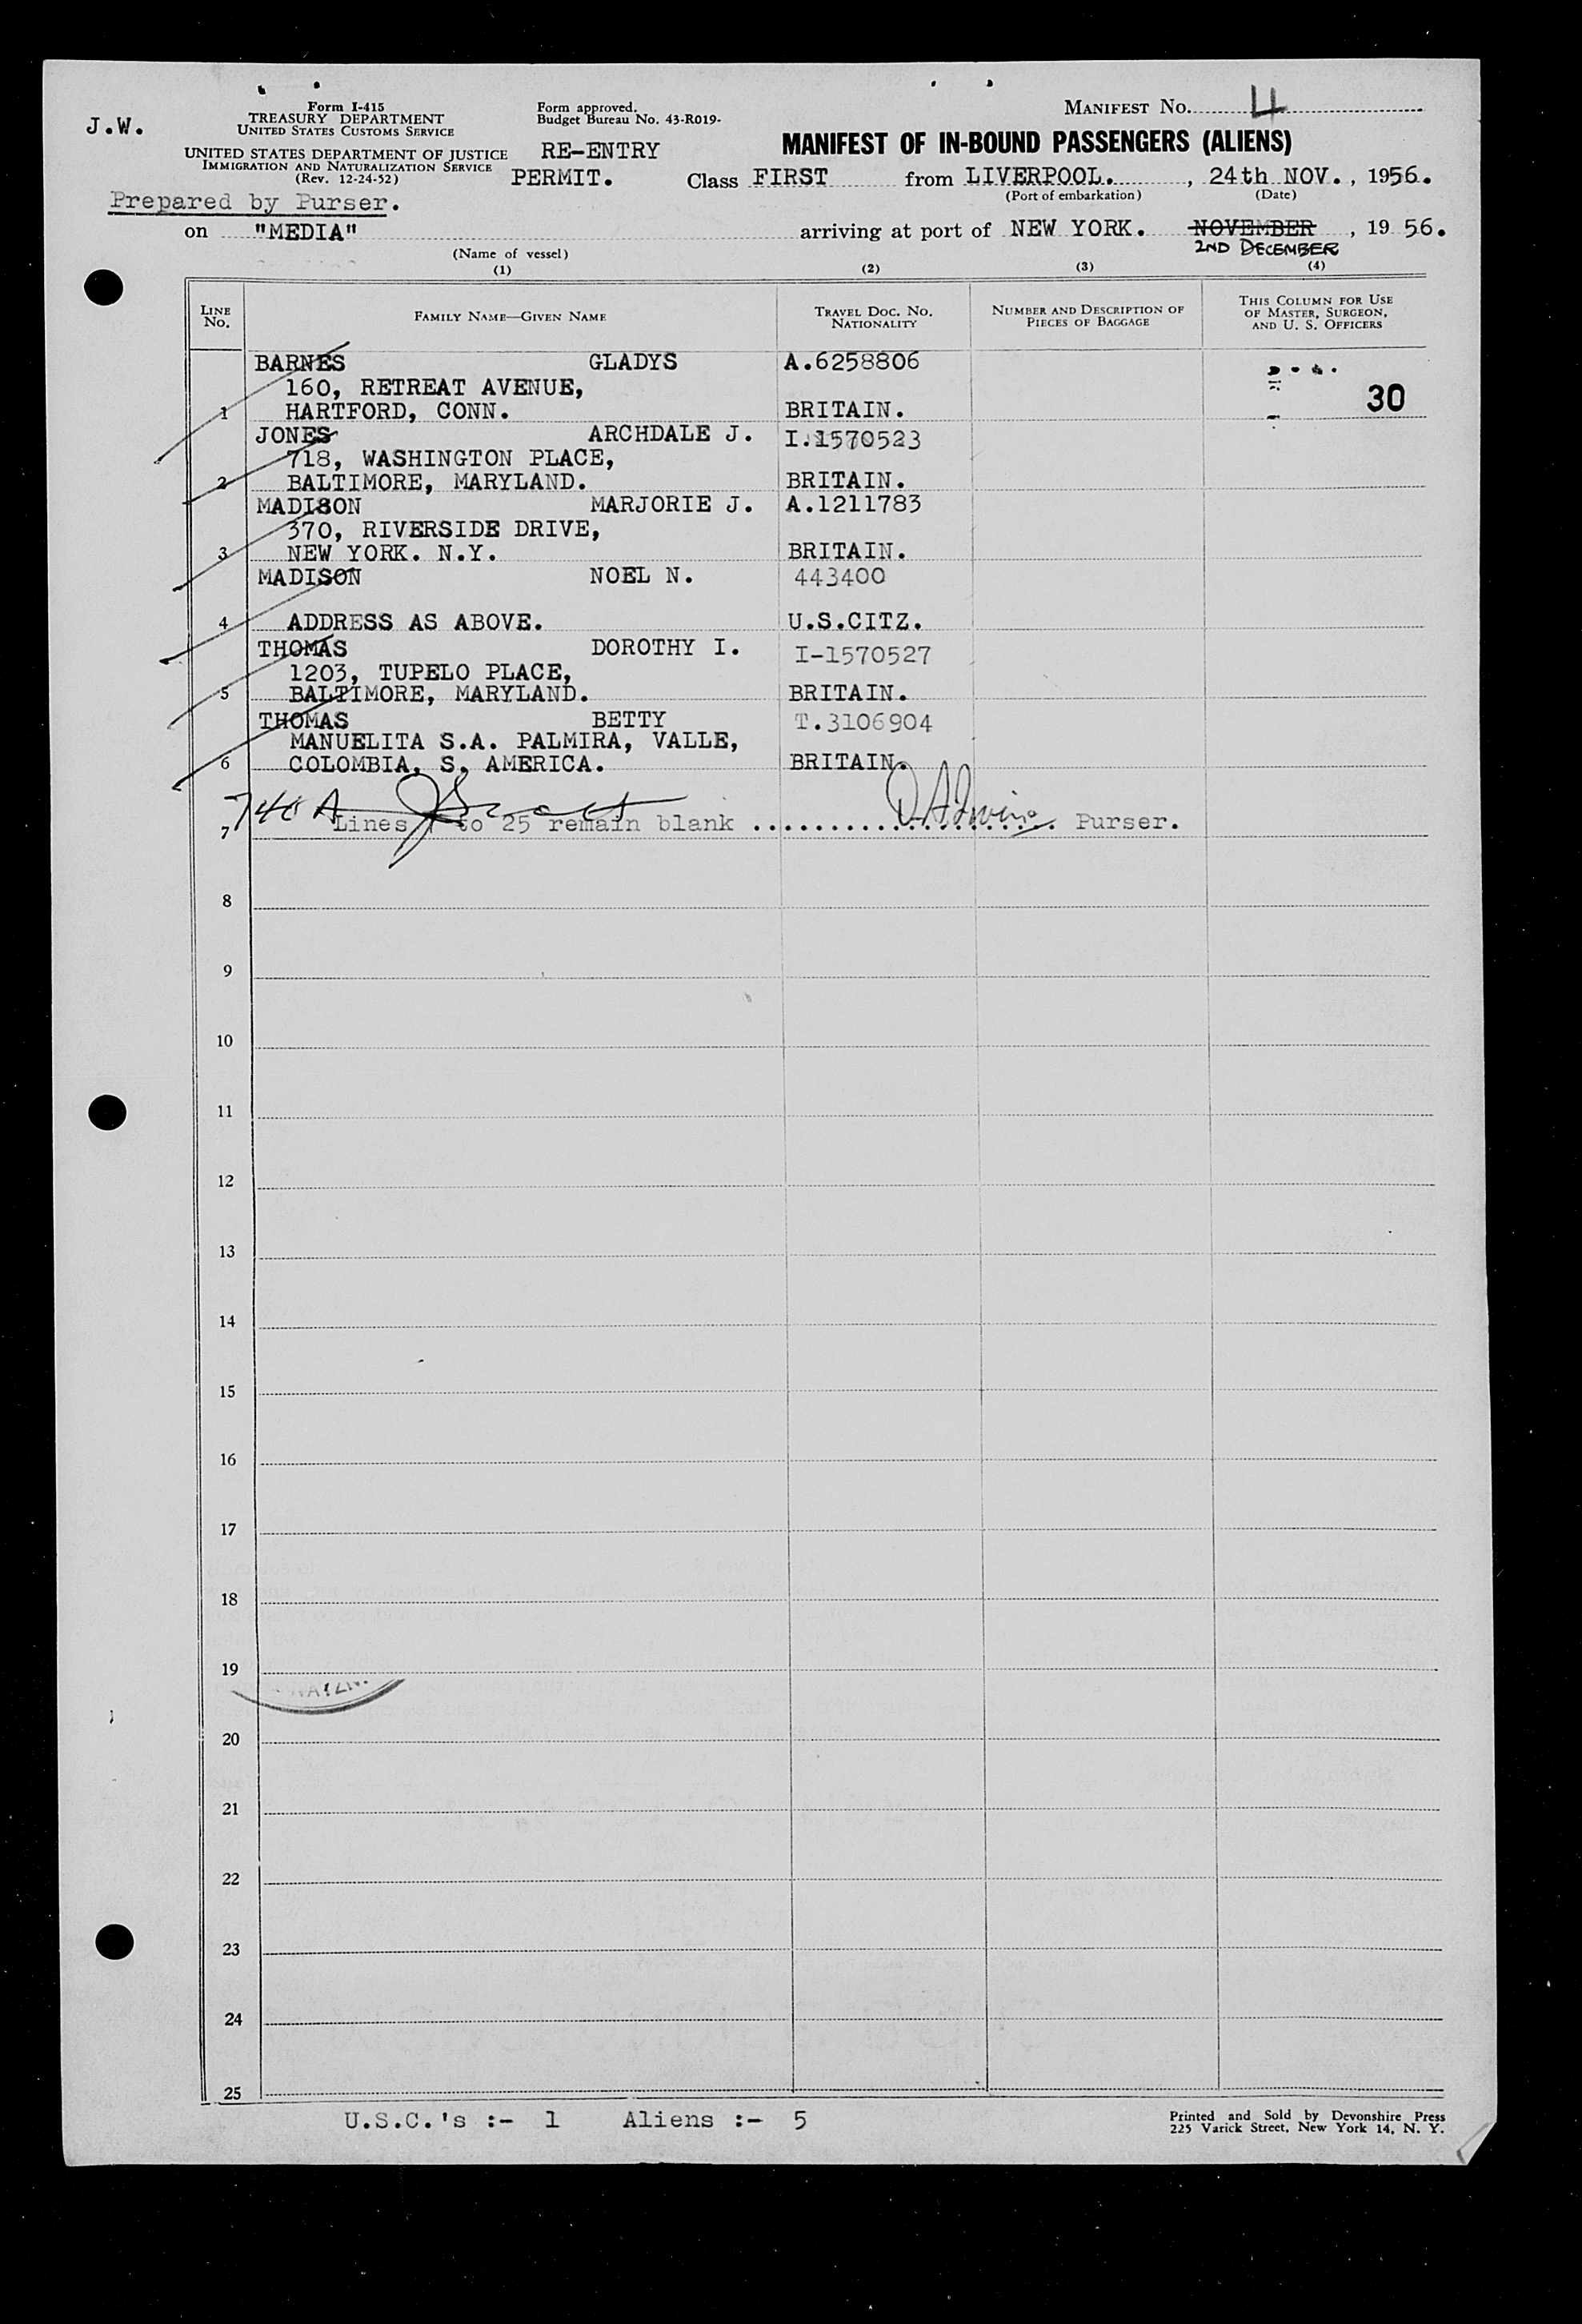 J.W.
Form I-415
TREASURY DEPARTMENT
UNITED STATES CUSTOMS SERVICE
UNITED STATES DEPARTMENT OF JUSTICE
IMMIGRATION AND NATURALIZATION SERVICE
(Rev. 12-24-52)
Form approved.
Budget Bureau No. 43-R019-
RE-ENTRY
PERMIT.
MANIFEST No. 4
MANIFEST OF IN-BOUND PASSENGERS (ALIENS)
Class FIRST from LIVERPOOL. , 24th NOV. , 1956.
(Port of embarkation) (Date)
Prepared by Purser.
on "MEDIA" arriving at port of NEW YORK. NOVEMBER , 19 56.
2ND DECEMBER
(Name of vessel)
(1) (2) (3) (4)
LINE No. FAMILY NAME—GIVEN NAME TRAVEL DOC. No. NATIONALITY NUMBER AND DESCRIPTION OF PIECES OF BAGGAGE THIS COLUMN FOR USE OF MASTER, SURGEON, AND U. S. OFFICERS
BARNES GLADYS A.6258806
160, RETREAT AVENUE, 30
1 HARTFORD, CONN. BRITAIN.
JONES ARCHDALE J. I.1570523
718, WASHINGTON PLACE,
2 BALTIMORE, MARYLAND. BRITAIN.
MADISON MARJORIE J. A.1211783
370, RIVERSIDE DRIVE,
3 NEW YORK. N.Y. BRITAIN.
MADISON NOEL N. 443400
4 ADDRESS AS ABOVE. U.S.CITZ.
THOMAS DOROTHY I. I-1570527
1203, TUPELO PLACE,
5 BALTIMORE, MARYLAND. BRITAIN.
THOMAS BETTY T.3106904
MANUELITA S.A. PALMIRA, VALLE,
6 COLOMBIA, S. AMERICA. BRITAIN.
7 Lines to 25 remain blank .................... Purser.
8
9
10
11
12
13
14
15
16
17
18
19
20
21
22
23
24
25
U.S.C.'s :- 1 Aliens :- 5
Printed and Sold by Devonshire Press
225 Varick Street, New York 14, N. Y.